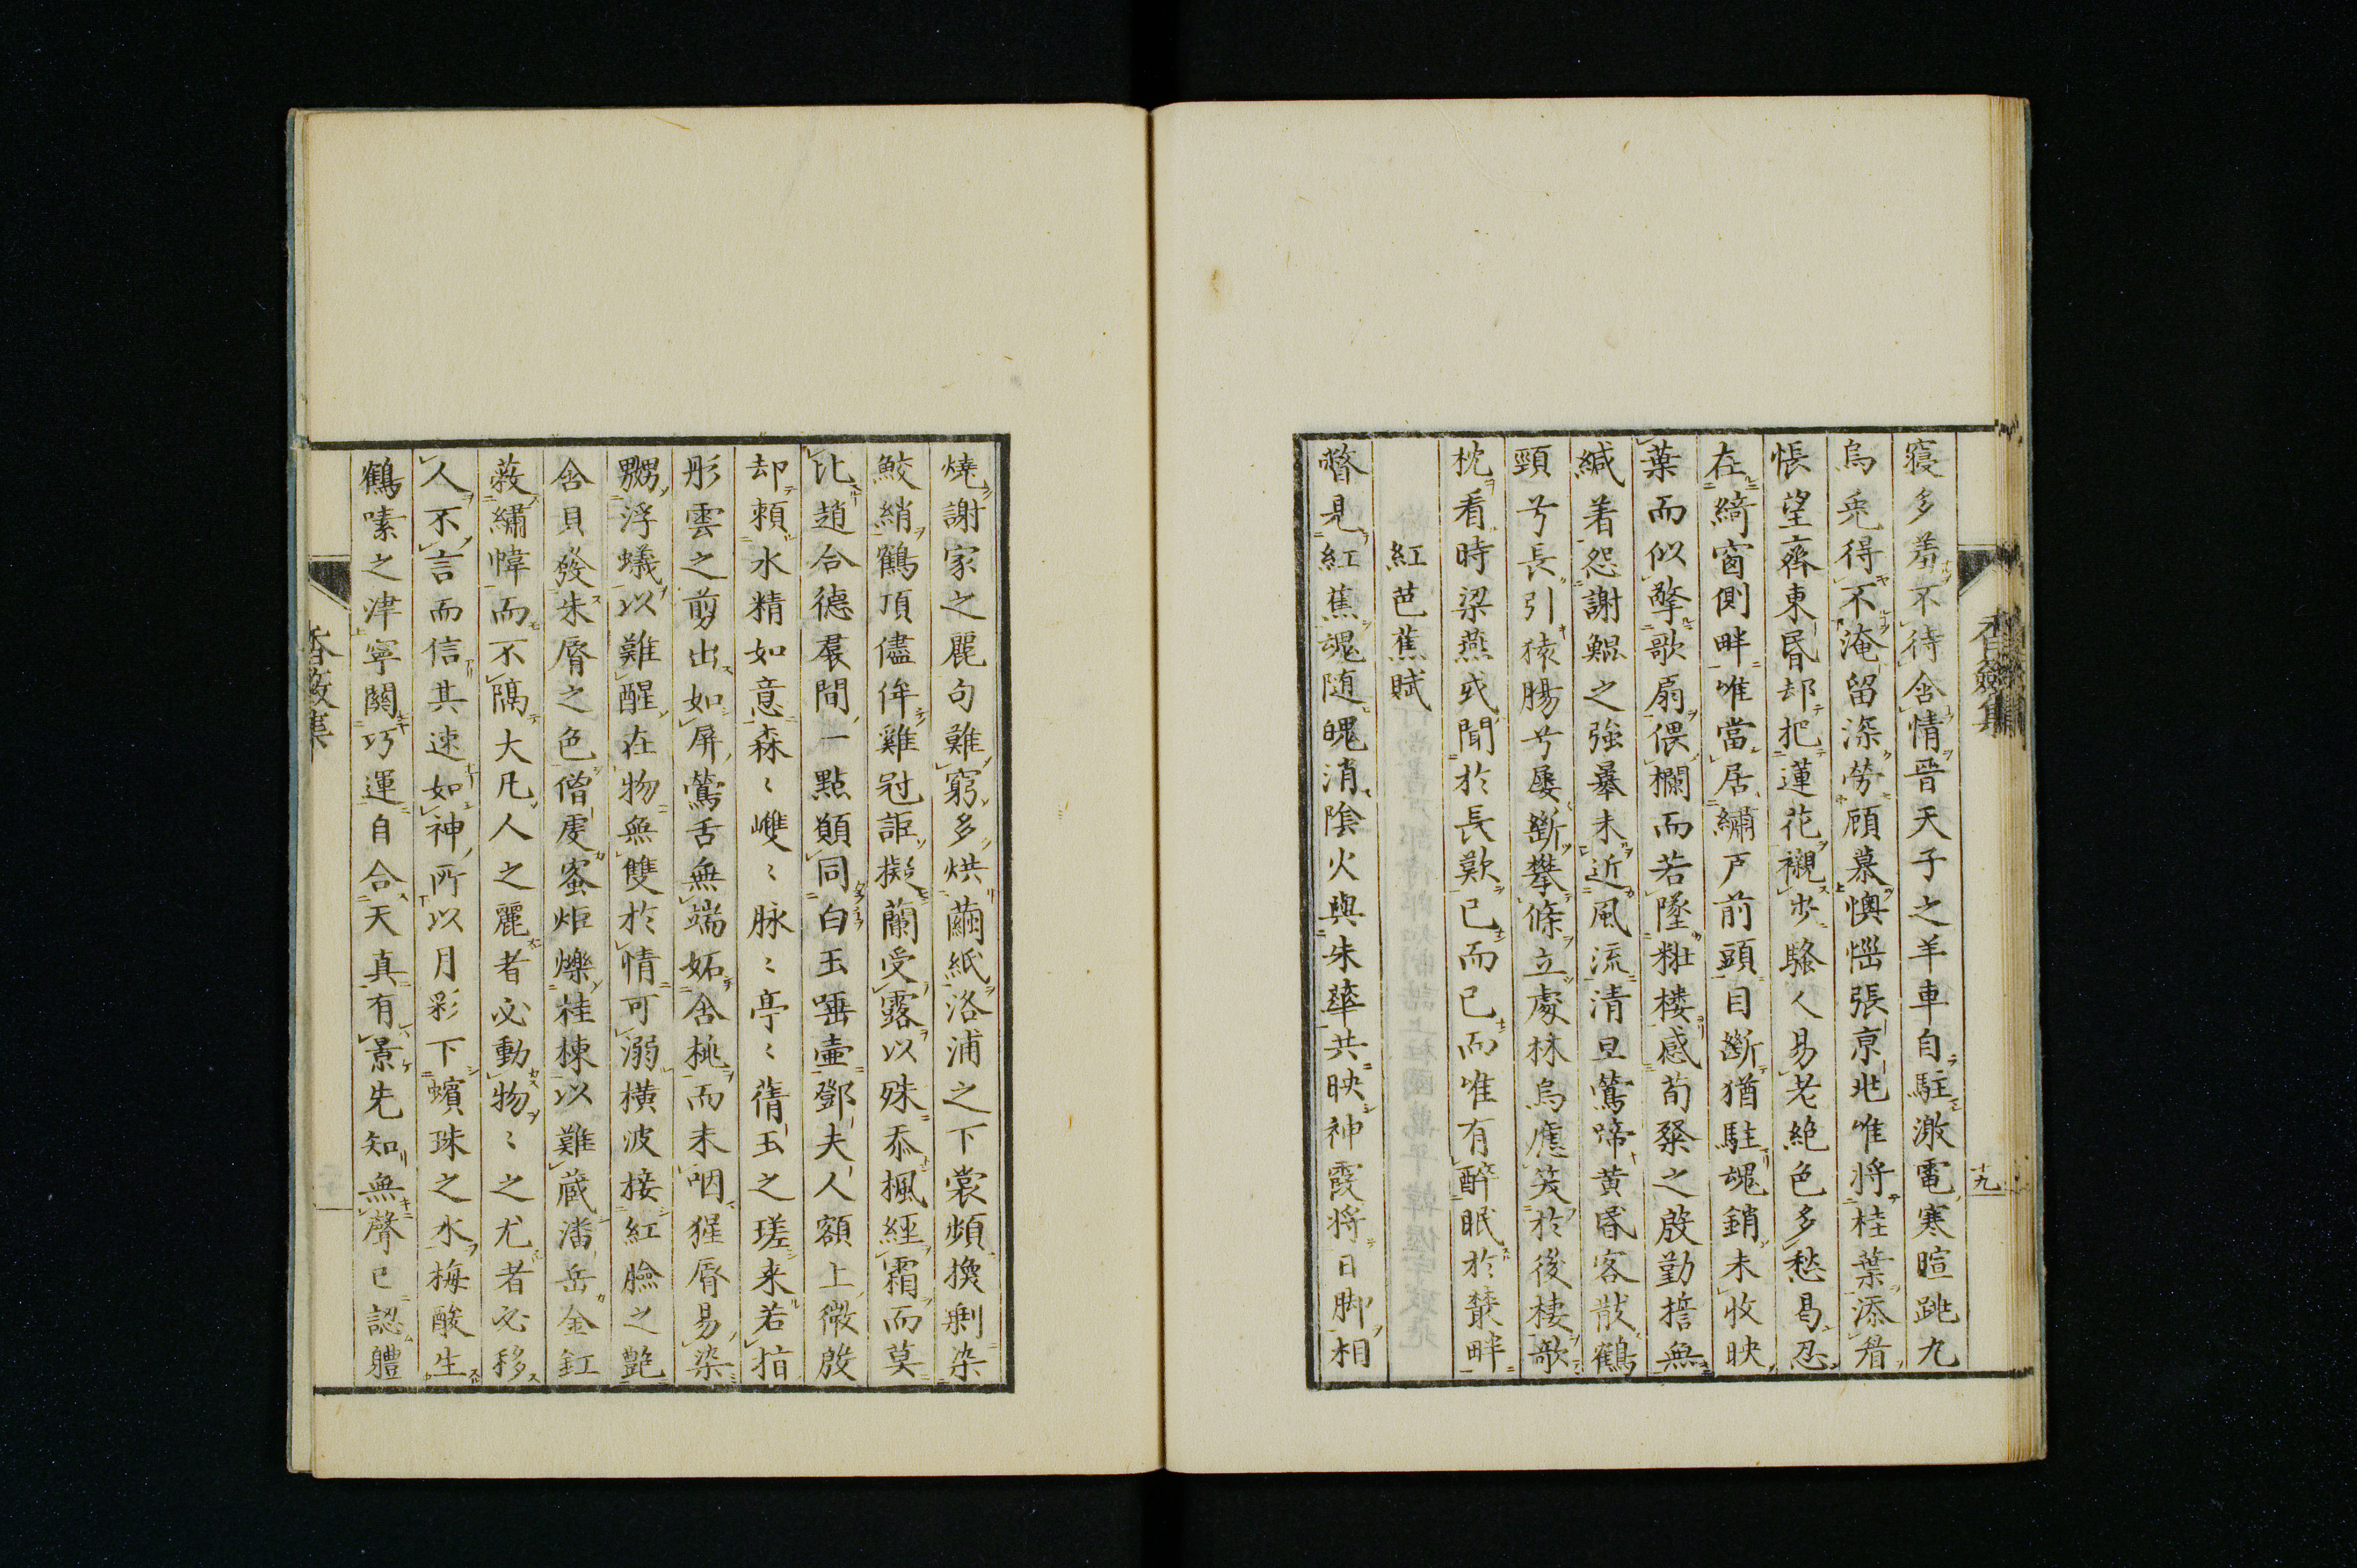 寢多羞不待含情晉天子之羊車自駐激電寒暄跳九
烏兎得不淹留深勞顧慕懊惱張京兆唯將桂葉添眉
悵望齊東昏却把蓮花襯步騷人易老絶色多愁曷忍
在綺窗側畔唯當居繡戸前頭目斷猶駐魂銷未收映
葉而似擎歌扇偎欄而若墜粧楼感荀粲之殷勤誓無
緘着怨謝鯤之強暴未近風流清旦鶯啼黄昏客散鶴
頸兮長引猿腸兮屡斷攀條立處林烏應笑於後棲歌
枕看時梁燕或聞於長歎已而已而唯有醉眠於叢畔
紅芭蕉賦
瞥見紅蕉魂随魄消陰火與朱華共映神霞将日脚相
燒謝家之麗句難窮多烘繭紙洛浦之下裳頻換剰染
鮫綃鶴頂儘侔雞冠詎擬蘭受露以殊忝楓經霜而莫
比趙合德裙間一點願同白玉唾壷鄧夫人額上微殷
却頼水精如意森〻嶫〻脉〻亭〻蒨玉之瑳来若指
彤雲之剪出如屏鶯舌無端妬含桃而未咽猩脣易染
嬲浮蟻以難醒在物無雙於情可溺橫波接紅臉之艶
含貝發朱脣之色僧虔蜜炬爍桂棟以難蔵潘岳金釭
蔽繡幃而不隔大凡人之麗者必動物〻之尤者必移
人不言而信其速如神所以月彩下蠙珠之水梅酸生
鶴嗉之津寧關巧運自合天真有景先知無聲已認軆
香奩集
十九
香奩集